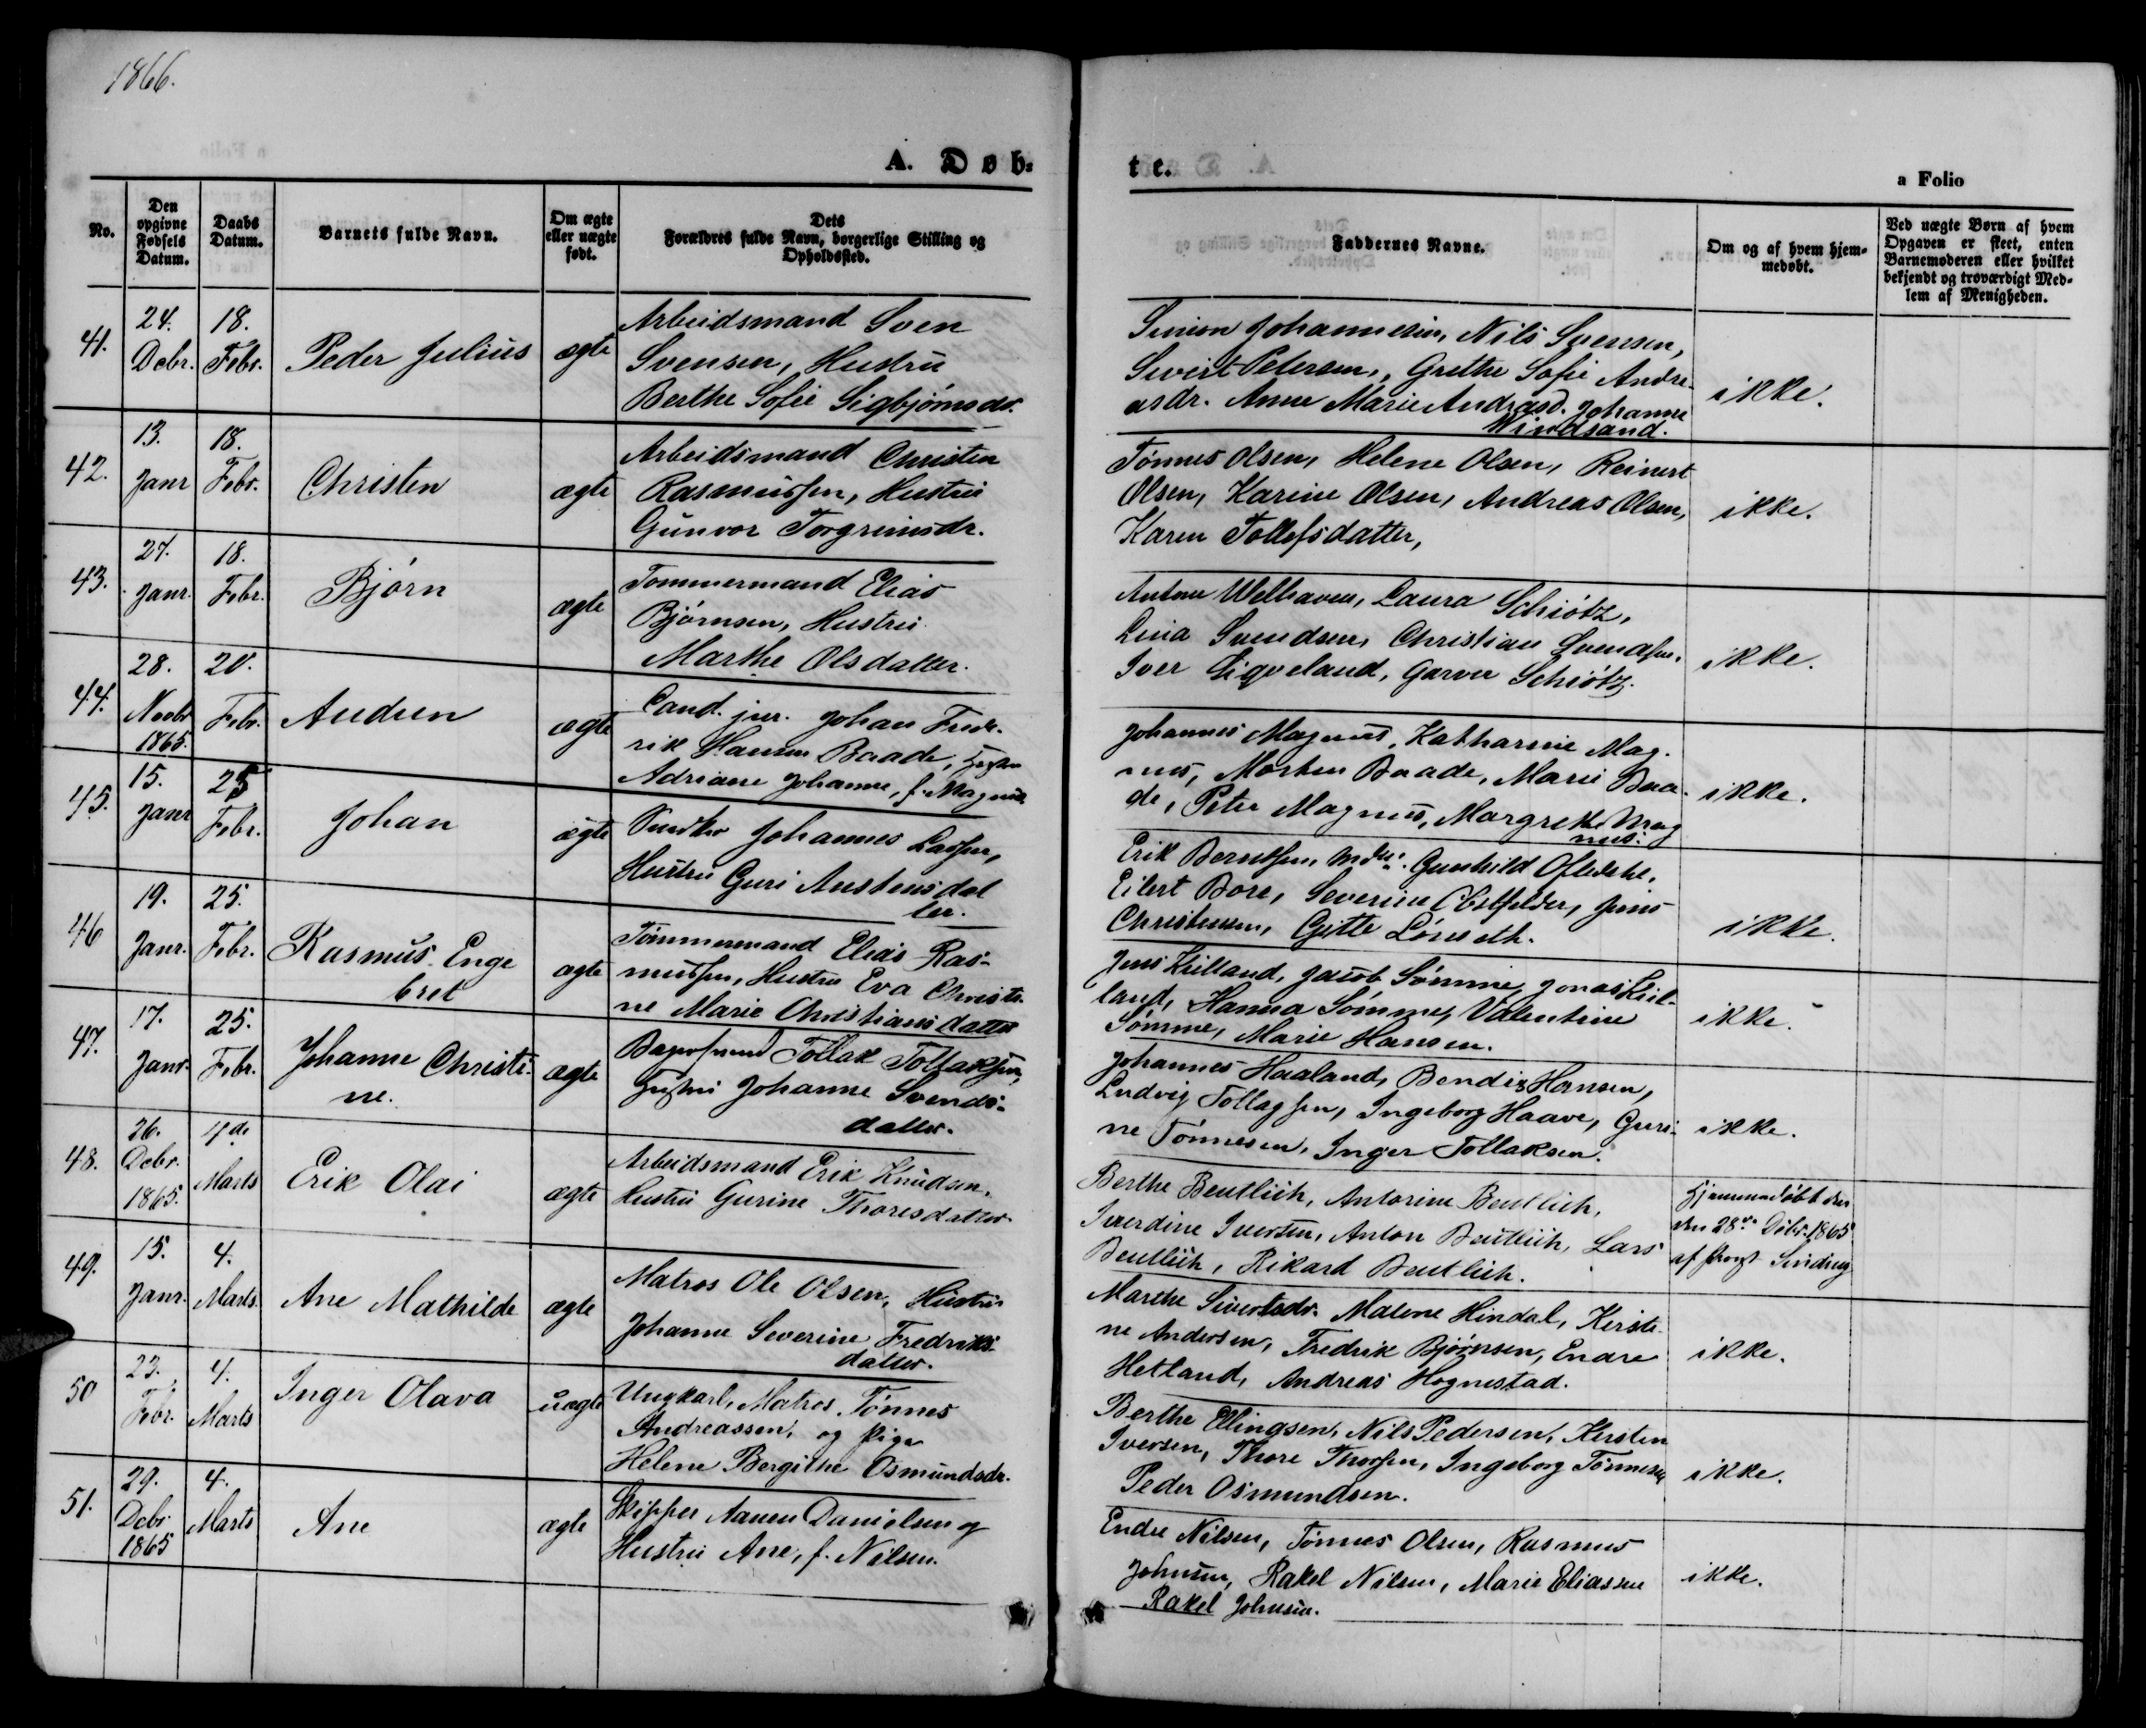 1866.
A. Døb=
te.
a Folio
No.
Den opgivne Fødsels Datum.
Daabs Datum.
Barnets fulde Navn.
Om ægte eller uægte født.
Dets Forældres fulde Navn, borgerlige Stilling og Opholdssted.
Faddernes Navne.
Om og af hvem hjem=medøbt.
Ved uægte Børn af hvem Opgaven er skeet, enten Barnemoderen eller hvilket bekjendt og troværdigt Med=lem af Menigheden.
41.
24. Debr.
18. Febr.
Peder Julius
ægte
Arbeidsmand Sven
Svensen, Hustru
Berthe Sofie Sigbjørnsdr.
Simon Johannesen, Nils Svensen,
Sivert Petersen, Grethe Sofie Andre-
asdr. Anne Marie Andrasd. Johanne
Windsand.
ikke.
42.
13. Janr
18. Febr.
Christen
ægte
Arbeidsmand Christen
Rasmussen, Hustru
Gunvor Torgrimsdr.
Tønnes Olsen, Helene Olsen, Reinert
Olsen, Karine Olsen, Andreas Olsen,
Karen Tollefsdatter,
ikke.
43.
27. Janr.
18. Febr.
Bjørn
ægte
Tommermand Elias
Bjørnsen, Hustru
Marthe Olsdatter.
Antone Welhaven, Laura Schiøtz,
Lina Svendsen, Christian Svendsen,
Iver Sigveland, Garver Schiøtz.
ikke.
44.
28. Novbr 1865.
20. Febr.
Audun
ægte
Cand. jur. Johan Fred-
rik Hansen Baade, Hustru
Adriane Johanne, f. Magnus.
Johannes Magnus, Katharine Mag-
nus, Morten Baade, Marie Baa-
de, Peter Magnus, Margrethe Mag
nus.
ikke.
45.
15. Janr
25 Febr.
Johan
ægte
Snedker Johannes Larsen,
Hustru Guri Austensdat
ter.
Erik Berntsen, Gunhild Oftedahl,
Eilert Bore, Severine Obstfelder, Jens
Christensen, Gitte
ikke.
46
19. Janr.
25. Febr.
Rasmus Enge
bret
ægte
Tømmermand Elias Ras-
mussen, Hustru Eva Christi-
ne Marie Christiansdatter
Jens Kielland, Jacob Sømme, Jonas Kiel-
land, Hanna Sømme, Valentine
Sømme, Marie Hansen.
ikke.
47.
17. Janr.
25. Febr.
Johanne Christi-
ne.
ægte
Tollak Tollaksen,
Hustru Johanne Svends-
datter.
Johannes Haaland, Bendix Hansen,
Ludvig Tollagsen, Ingeborg Haave, Guri-
ne Tønnesen, Inger Tollaksen.
ikke.
48.
26. Debr. 1865.
4de Marts
Erik Olai
ægte
Arbeidsmand Erik Knudsen,
Hustru Gurine Thoresdatter
Berthe Beutlich, Antorine Beutlich,
Iverdine Iversen, Anton Beutlich, Lars
Beutlich, Rikard Beutlich.
Hjemmedøbt den
den 28de Debr. 1865
af Provst Sinding
49.
15. Janr.
4. Marts.
Ane Mathilde
ægte
Matros Ole Olsen, Hustru
Johanne Severine Fredriks-
datter.
Marthe Sivertsdr. Malene Hindal, Kirsti-
ne Andersen, Fredrik Bjørnsen, Endre
Hetland, Andreas Hognestad.
ikke.
50
23. Febr.
4. Marts
Inger Olava
uægte
Ungkarl, Matros Tønnes
Andreassen, og Pige
Helene Bergithe Osmundsdr.
Berthe Ellingsen, Nils Pedersen, Kirsten
Iversen, Thore Thorsen, Ingeborg Tønnesen,
Peder Osmundsen.
ikke.
51.
29. Debr. 1865
4. Marts
Ane
ægte
Skipper Aanen Danielsen og
Hustru Ane, f. Nilsen.
Endre Nilsen, Tønnes Olsen, Rasmus
Johnsen, Rakel Nilsen, Marie Eliassen
Rakel Johnsen.
ikke.